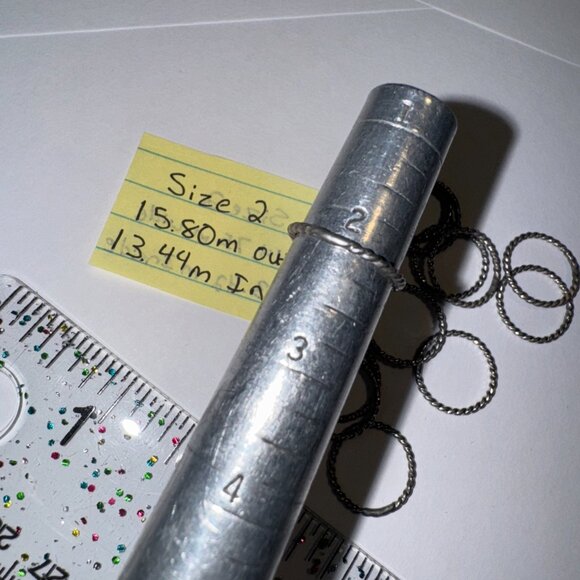 Size 2
15.80m ou
13.44m In
1
2
3
4
1